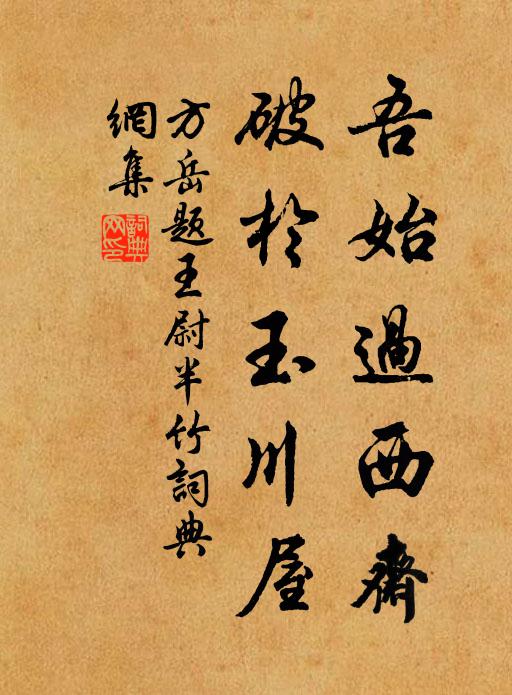 吾始過西齋
破於玉川屋
方岳題王尉半竹詞典
網集
詞典網印